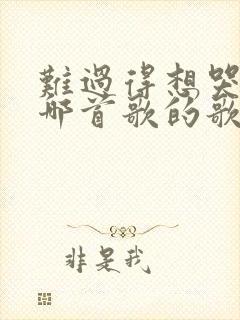 難過得想哭
那首歌的歌
非是我